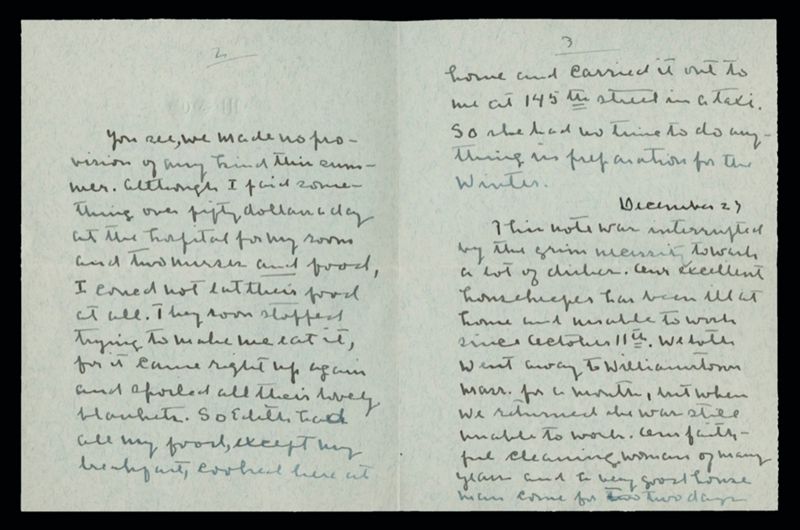 2
You see, we made no pro-
vision of any kind this sum-
mer. Although I paid some-
thing over fifty dollars a day
at the hospital for my room
and two nurses and food,
I could not eat their food
at all. They soon stopped
trying to make me eat it,
for it came right up again
and spoiled all their lovely
blankets. So Edith had
all my food, except my
breakfast, cooked here at
3
home and carried it out to
me at 145th street in a taxi.
So she had no time to do any-
thing in preparation for the
Winter.
December 27
This note was interrupted
by the grim necessity to wash
a lot of dishes. Our excellent
housekeeper has been ill at
home and unable to work
since October 11th. We both
went away to Williamstown
Mass. for a month, but when
we returned she was still
unable to work. Our faith-
ful cleaning woman of many
years and a very good house
man come for two days